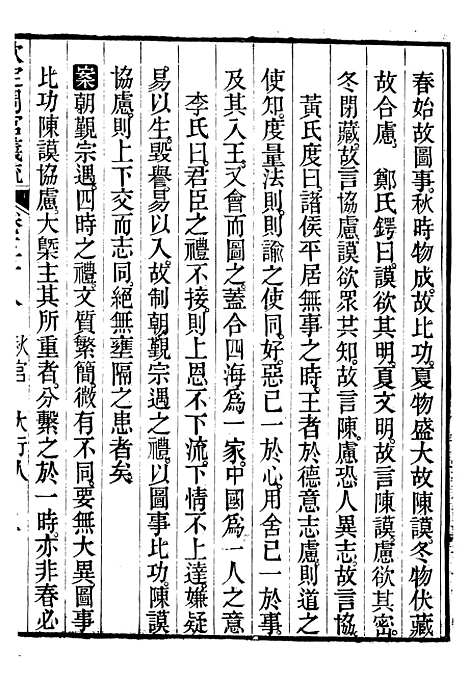 春始故圖事。秋時物成。故比功。夏物盛大故陳謨。冬物伏藏
故合慮。　鄭氏鍔曰。謨欲其明。夏文明。故言陳謨。慮欲其密。
冬閉藏。故言協慮。謨欲眾共知。故言陳。慮恐人異志。故言協
黃氏度曰。諸侯平居無事之時。王者於德意志慮。則道之
使知。度量法則。則諭之使同。好惡已一於心。用舍已一於事。
及其入王。又會而圖之。蓋合四海為一家。中國為一人之意
李氏曰。君臣之禮不接。則上恩不下流。下情不上達。嫌疑
易以生。毀譽易以入。故制朝覲宗遇之禮。以圖事比功。陳謨
協慮。則上下交而志同。絕無壅隔之患者矣。
案朝覲宗遇。四時之禮。文質繁簡微有不同。要無大異。圖事
比功陳謨協慮。大槩主其所重者。分繫之於一時。亦非春必
欽定周官義疏　卷三十八　秋官　大行人